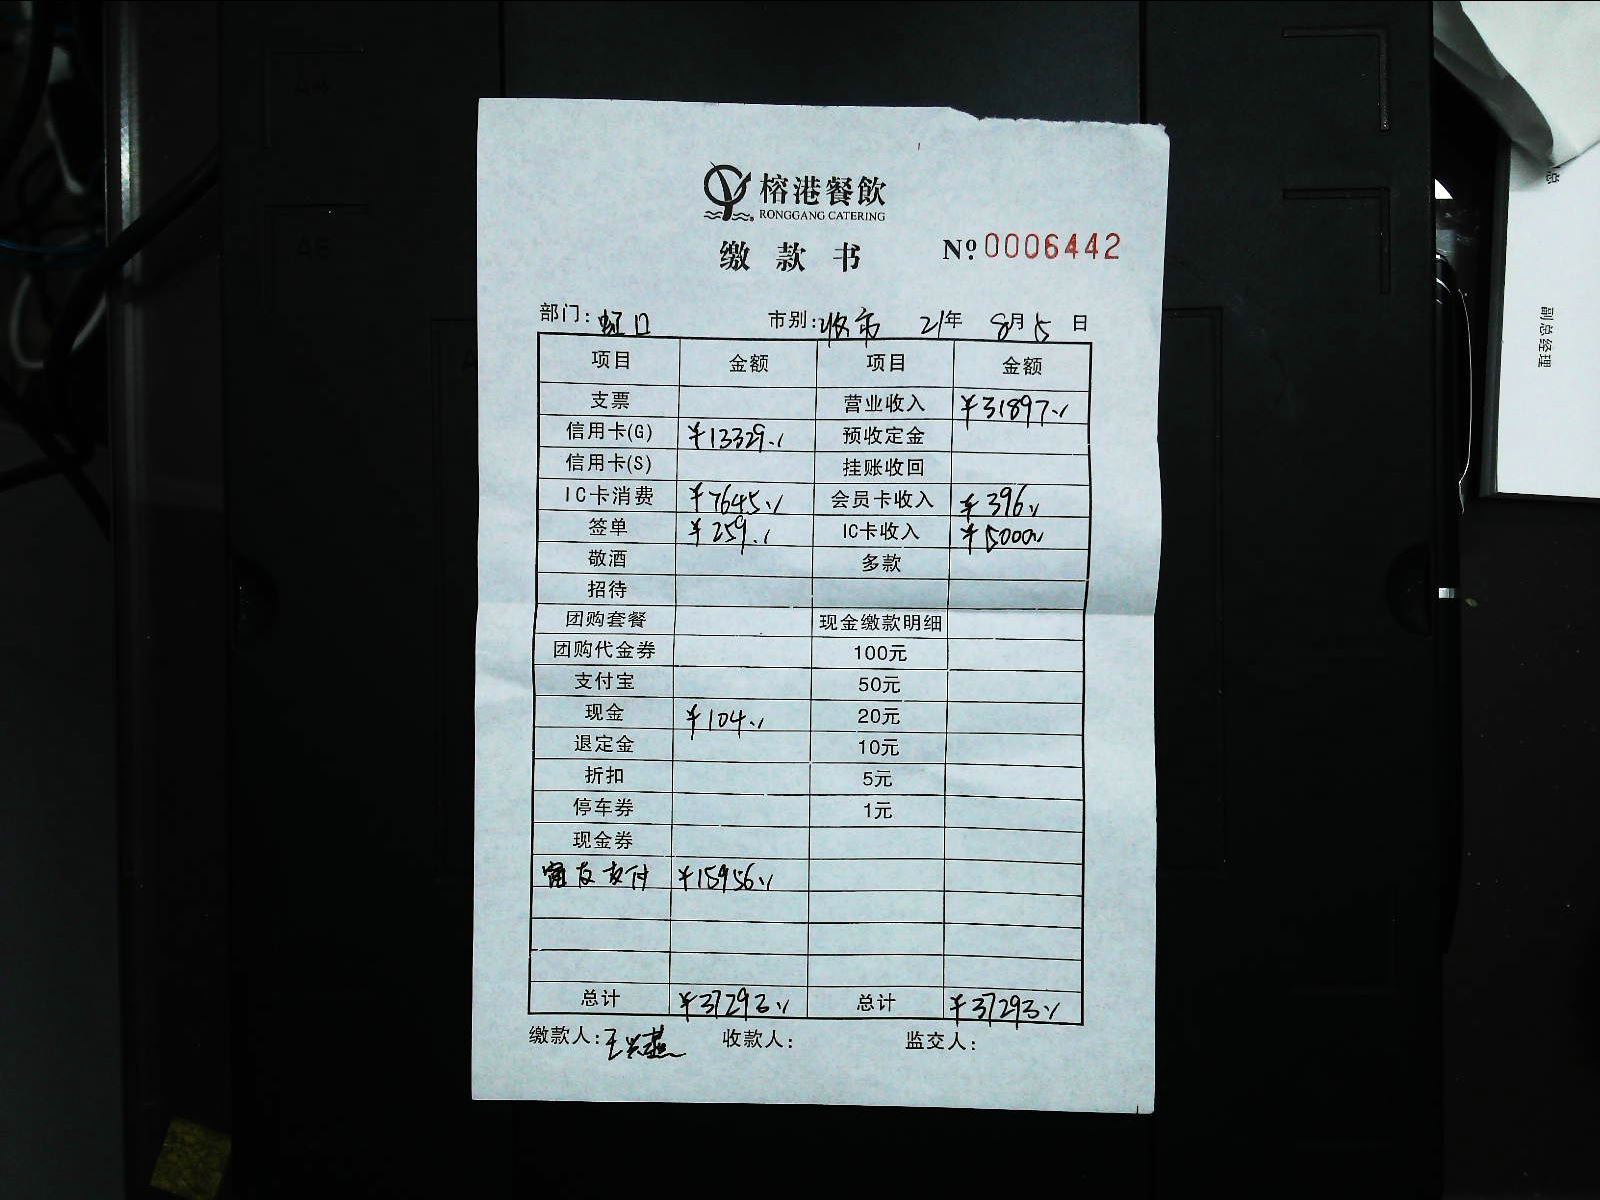 榕港餐飲
RONGGANG CATERING
缴款书 Nº 0006442
部门: 虹口 市别: 收市 21年 8月5日
项目 金额 项目 金额
支票 营业收入 ¥31897.
信用卡(G) ¥13329. 预收定金
信用卡(S) 挂账收回
IC卡消费 ¥7645. 会员卡收入 ¥396.
签单 ¥259. IC卡收入 ¥5000
敬酒 多款
招待
团购套餐 现金缴款明细
团购代金券 100元
支付宝 50元
现金 ¥104. 20元
退定金 10元
折扣 5元
停车券 1元
现金券
友支付 ¥15956.
总计 ¥37293. 总计 ¥37293.
缴款人: 王兴燕 收款人: 监交人:
副总经理
总
A6